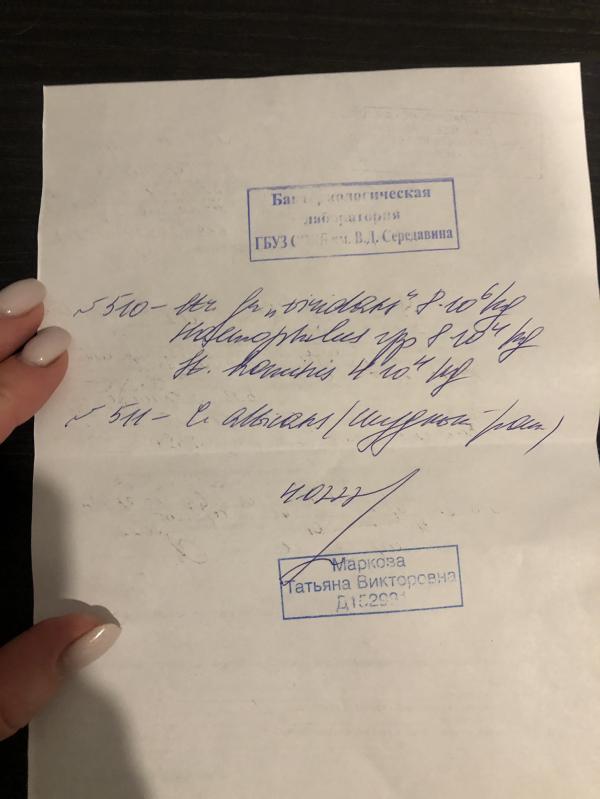 Бактериологическая
лаборатория
ГБУЗ им. В.Д. Середавина
№510 - Str. gr. „viridans“ 8·10⁶/kg
Haemophilus spp 8·10⁴/kg
St. hominis 4·10⁴/kg
№511 - C. albicans (скудный рост)
Маркова
Татьяна Викторовна